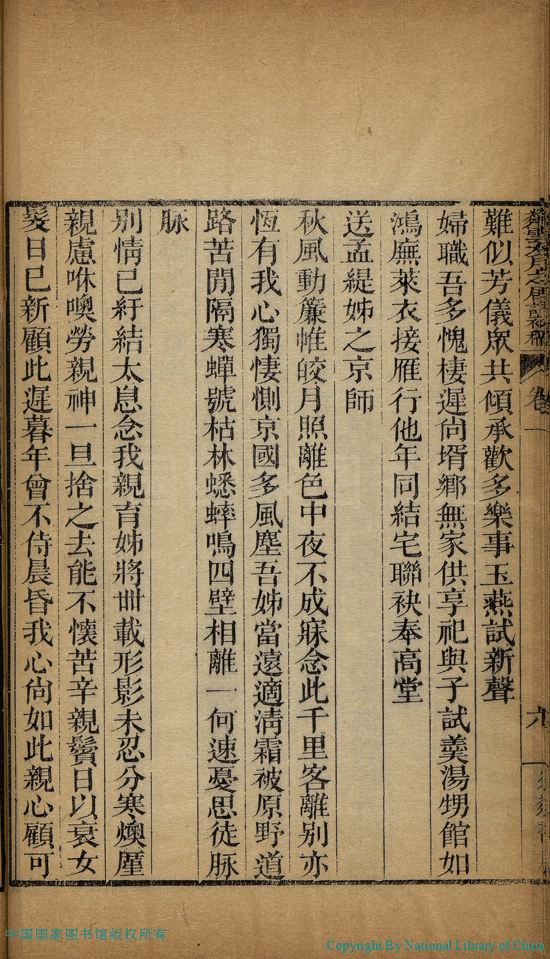 鄰雲友月之居詩初稿 卷一 九
難似芳儀眾共傾承歡多樂事玉燕試新聲
婦職吾多愧棲遲尙壻鄉無家供享祀與子試羹湯甥館如
鴻廡萊衣接雁行他年同結宅聯袂奉高堂
送孟緹姊之京師
秋風動簾帷皎月照離色中夜不成寐念此千里客離別亦
恆有我心獨悽惻京國多風塵吾姊當遠適淸霜被原野道
路苦閒隔寒蟬號枯林蟋蟀鳴四壁相離一何速憂思徒脈
脈
別情已紆結太息念我親育姊將卌載形影未忍分寒燠厪
親慮咻噢勞親神一旦捨之去能不懷苦辛親鬢日以衰女
髮日已新顧此遲暮年曾不侍晨昏我心尙如此親心顧可
中国國家图书馆版权所有
Copyright By National Library of China